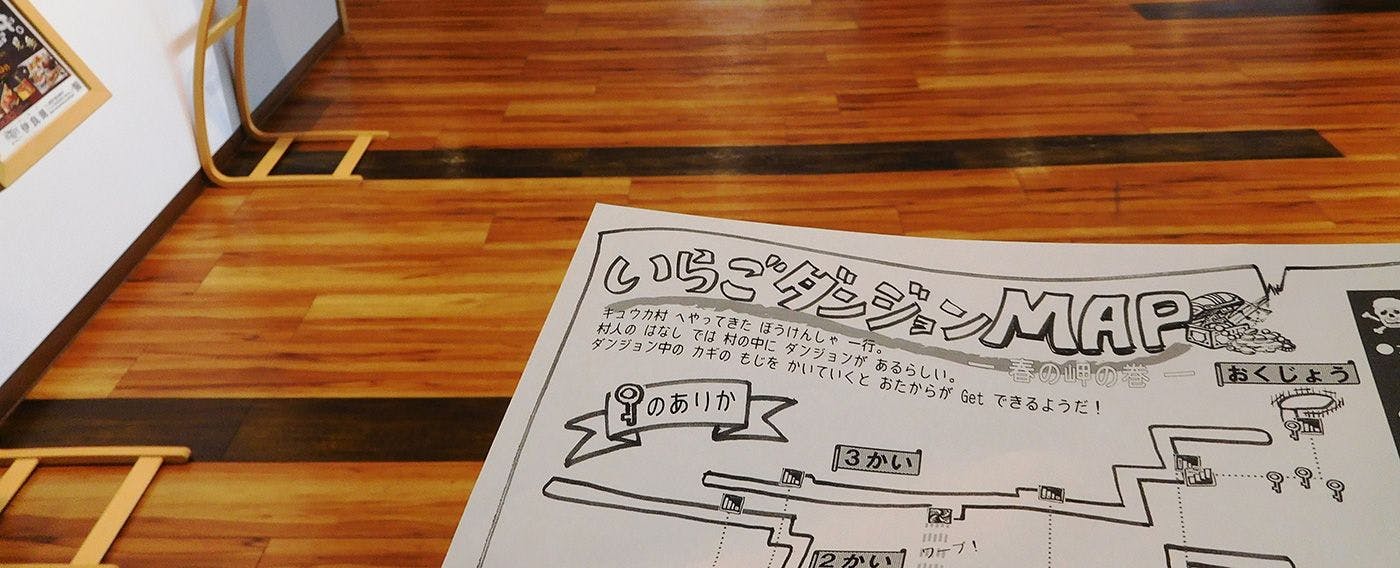 いらごダンジョンMAP
キュウカ村 へやってきた ぼうけんしゃ 一行。
村人の はなし では 村の中に ダンジョンが あるらしい。
ダンジョン中の カギの もじを かいていくと おたからが Get できるようだ!
― 春の岬の巻 ―
おくじょう
のありか
3かい
2かい
ワープ!